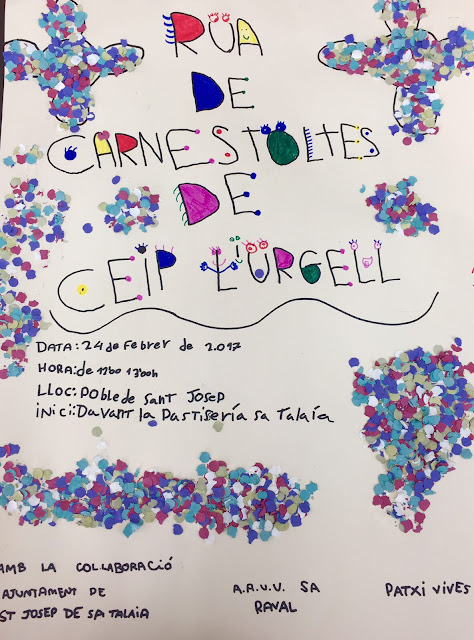 RÜA
DE
CARNESTOLTES
DE
CEIP L'URGELL
DATA: 24 de Febrer de 2.017
HORA: de 12h00 13h00h
LLoc: Poble de Sant Josep
inici: Davant la Pastiseria sa Talaia
AMB LA COL.LABORACIÓ
AJUNTAMENT DE
ST JOSEP DE SA TALAIA
A.A.V.V. SA
RAVAL
PATXI VIVES